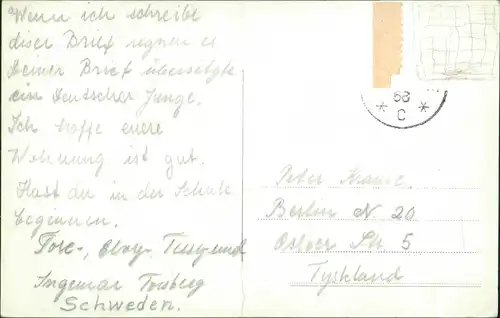 Wenn ich schreibe
diser Brief regnen es
Deiner Brief übersetzte
ein Deutscher Junge.
Ich hoffe euere
Wohnung ist gut.
Hast du in der Schule
beginnen.
Tore-,
Ingemar Torsberg
Schweden.
56
* C *
Peter Krause.
Berlin N 20
Osloer Str 5
Tyskland